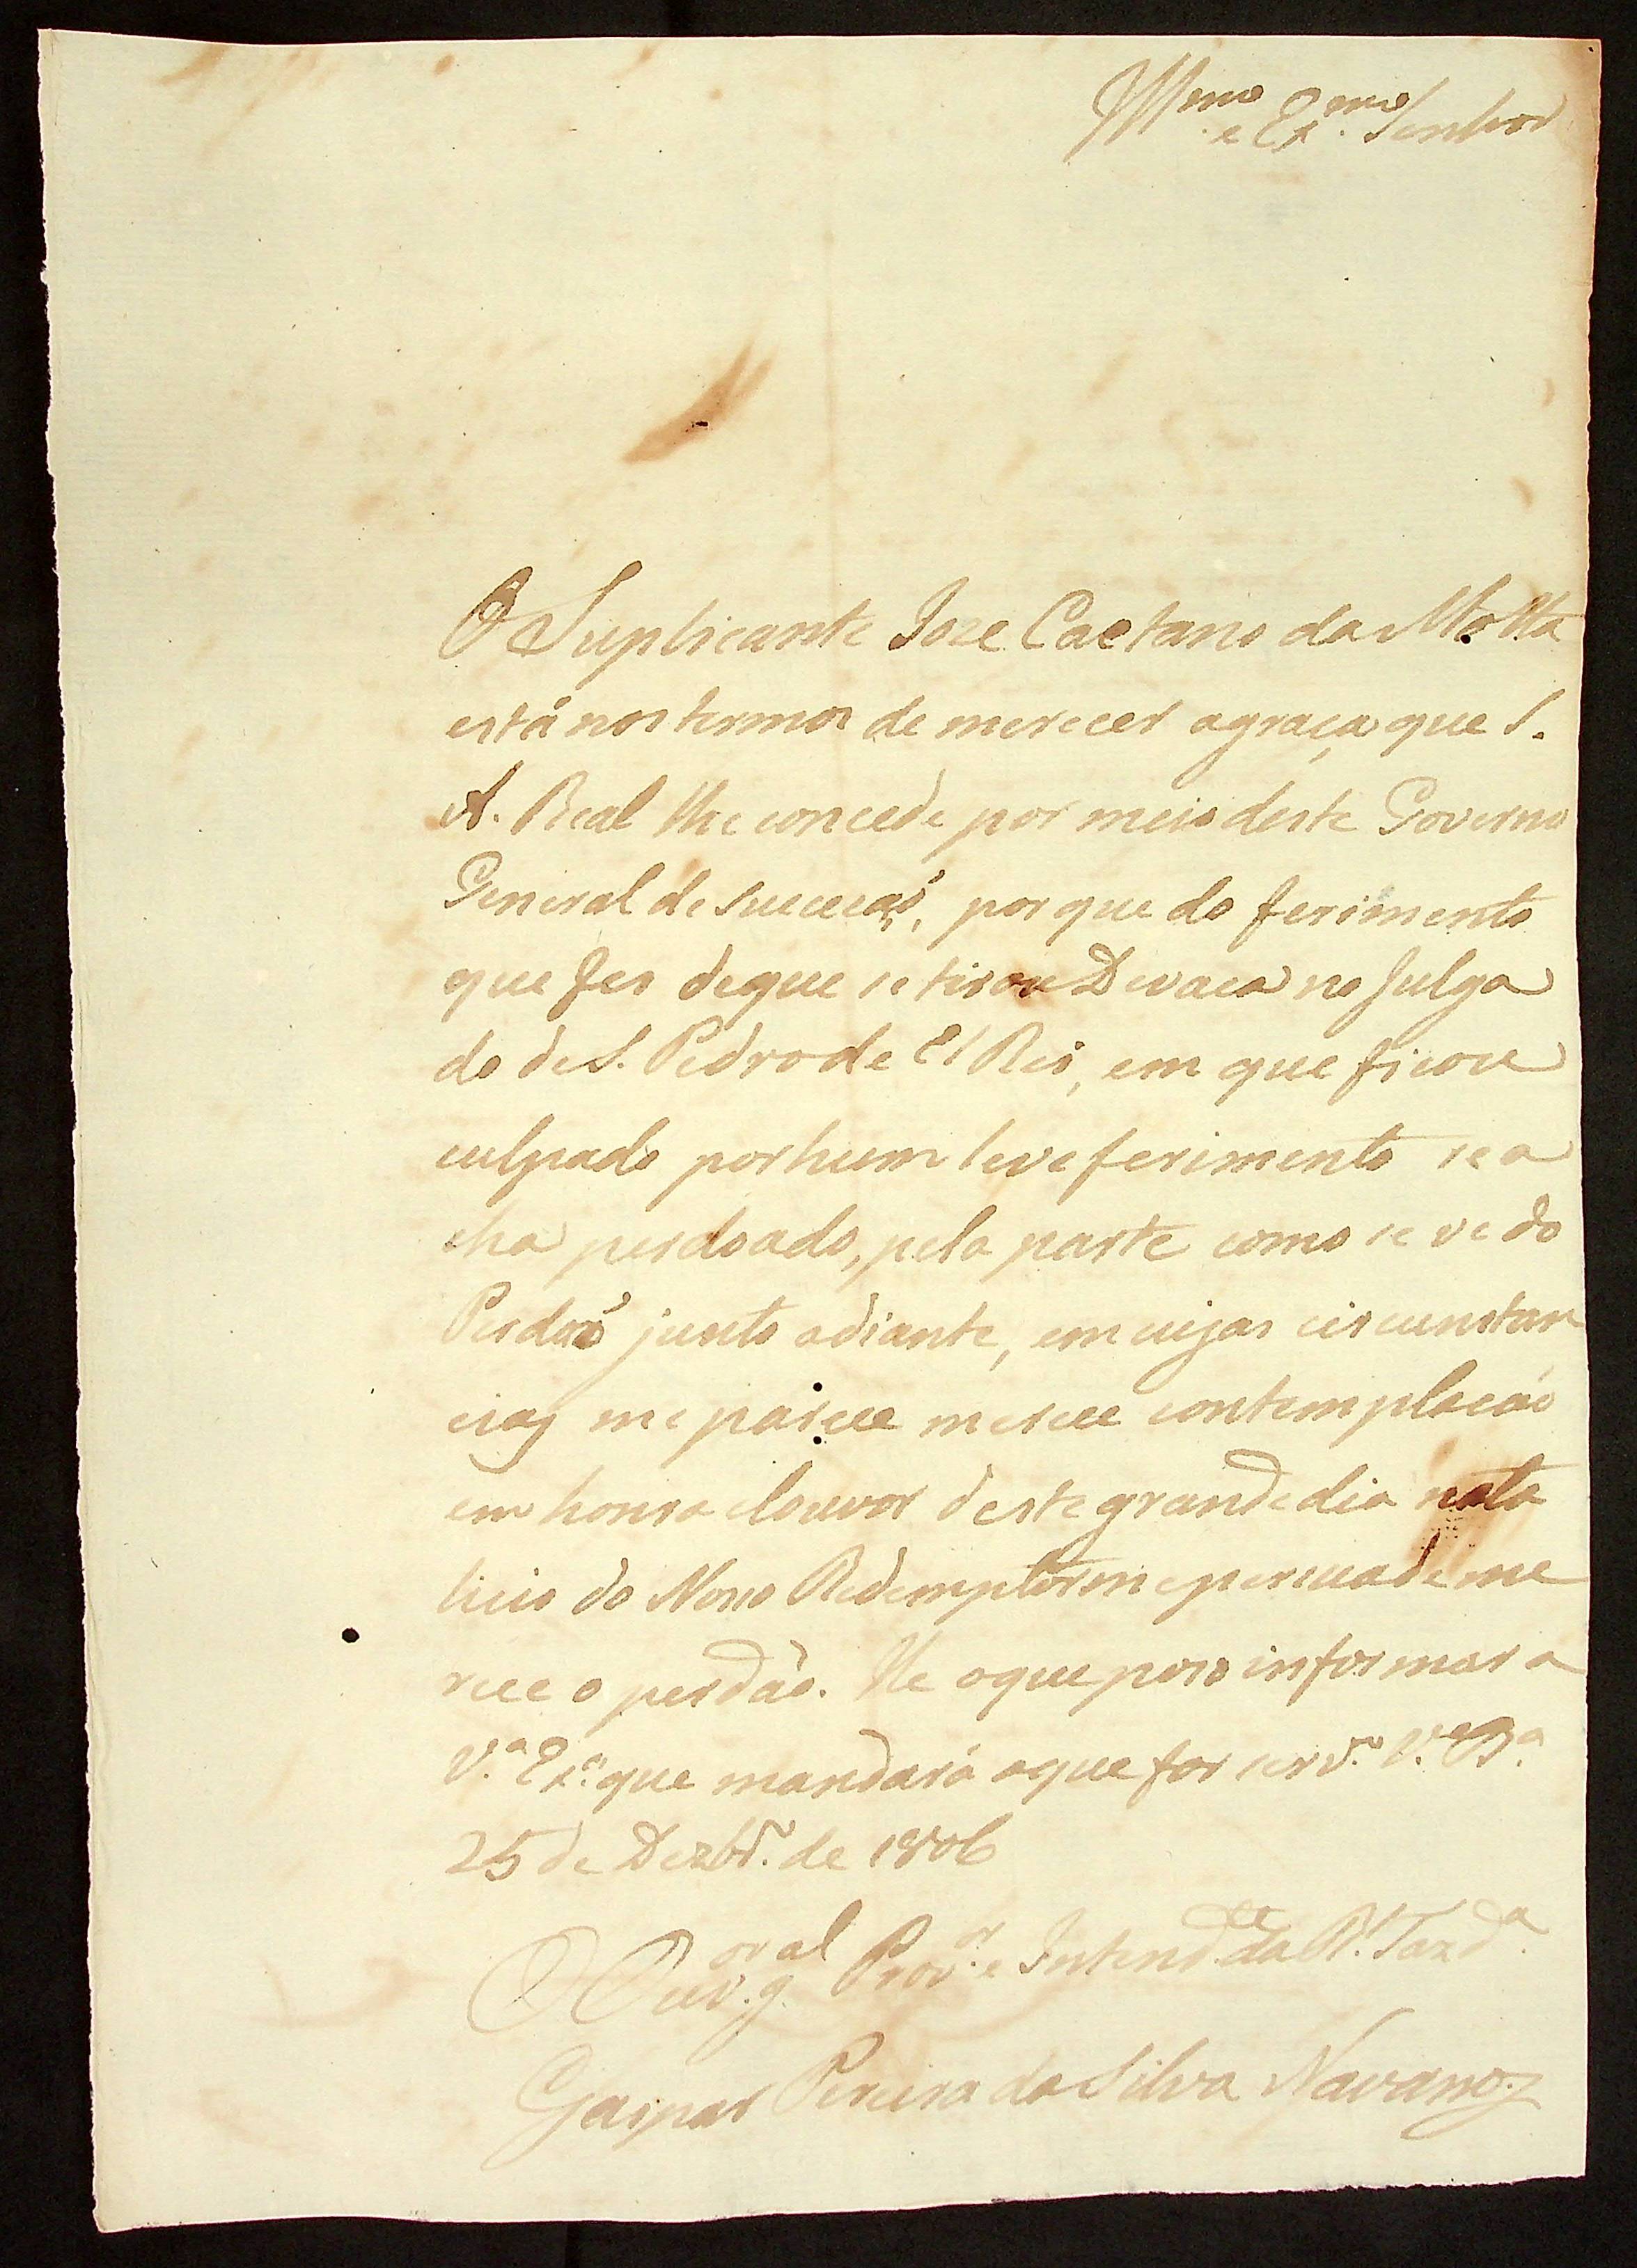 Illmo. e Exmo. Senhor
O Suplicante Joze Caetano da Motta
está nos termos de merecer agraça que S.
A. Real lhe concede por meio deste Governo
General de Succecaó, porque do ferimento
que fes deque se tirou Devaca no Julga
do de S. Pedro de El Rei, em que ficou
culpado por hum leve ferimento se a
cha perdoado, pela parte como se ve do
Perdaó junto adiante, em cujas circunstan
cias me parece merece contemplacáo
em honra elouvor deste grande dia nata
licio do Nosso Redemptor me persuade me
rece o perdáo. He oque poso informar a
V.ª Ex.ª que mandará oque for serv.º V.ª B.ª
25 de Dezbr.º de 1806
O Ouv.or g.al Prov.or e Intend.te da R.l Fazd.ª
Gaspar Pereira da Silva Navarro